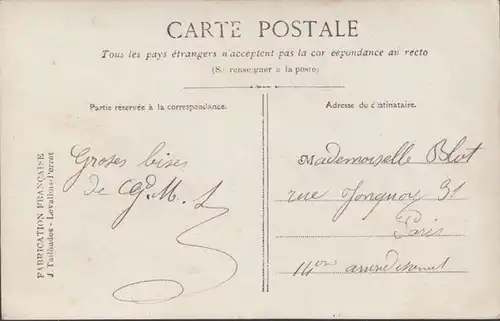 CARTE POSTALE
Tous les pays étrangers n'acceptent pas la cor espondance au recto
(S. renseigner à la poste)
Partie réservée à la correspondance.
Adresse du destinataire.
Groses bises
de
Mademoiselle Blot
rue Jonquoy 31
Paris
14em arrondissement
FABRICATION FRANÇAISE
J. Tailhades - Levallois-Perret